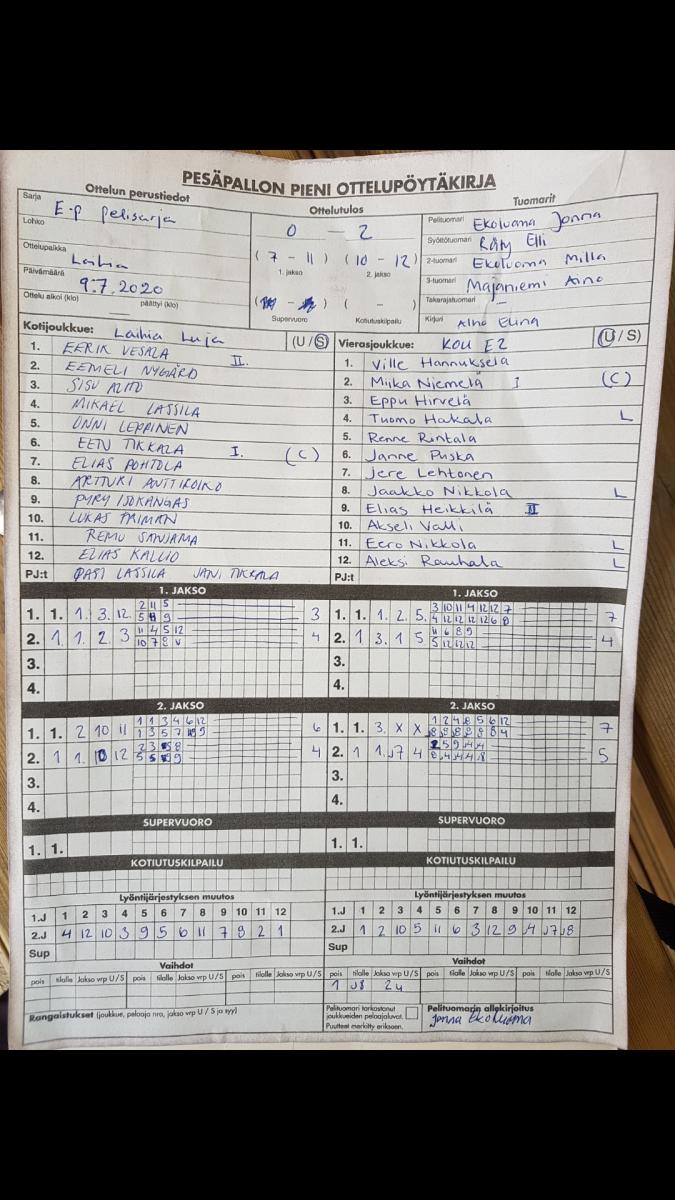 PESÄPALLON PIENI OTTELUPÖYTÄKIRJA
Ottelun perustiedot
Sarja E-p pelisarja
Lohko
Ottelupaikka Laihia
Päivämäärä 9.7.2020
Ottelu alkoi (klo) päättyi (klo)
Ottelutulos
0 - 2
(7 - 11) (10 - 12)
1. jakso 2. jakso
( - ) ( - )
Supervuoro Kotiutuskilpailu
Tuomarit
Pelituomari Ekoluoma Jonna
Syöttötuomari Räty Elli
2-tuomari Ekoluoma Milla
3-tuomari Majaniemi Aino
Takarajatuomari -
Kirjuri Alho Elina
Kotijoukkue: Laihia Luja (U / S)
1. EERIK VESALA
2. EEMELI NYGÅRD II.
3. SISU ALITO
4. MIKAEL LASSILA
5. ONNI LEPPINEN
6. EETU TIKKALA I. (C)
7. ELIAS POHTOLA
8. ARTTURI ANTTIROIKO
9. PYRY ISOKANGAS
10. LUKAS FRIMAN
11. REMU SANJAMA
12. ELIAS KALLIO
PJ:t PASI LASSILA JANI TIKKALA
Vierasjoukkue: KOU E2 (U / S)
1. Ville Hannuksela
2. Miika Niemelä I (C)
3. Eppu Hirvelä
4. Tuomo Hakala L
5. Renne Rintala
6. Janne Puska
7. Jere Lehtonen
8. Jaakko Nikkola L
9. Elias Heikkilä II
10. Akseli Valli
11. Eero Nikkola L
12. Aleksi Rauhala L
PJ:t
1. JAKSO
1. 1. 1. 3. 12. 2 11 5 3
2. 1. 1. 2 3 11 4 5 12 4
10 7 8 v
3.
4.
1. JAKSO
1. 1. 1. 2. 5. 3 10 11 4 12 12 7 7
4 12 12 12 12 6 8
2. 1 3. 1 5 11 6 8 9 4
5 12 12 12
3.
4.
2. JAKSO
1. 1. 2 10 11 1 1 3 4 6 12 6
2. 1 1. 10 12 4
3.
4.
2. JAKSO
1. 1. 3. x x 1 2 4 8 5 6 12 7
2. 1 1. 7 4 5
3.
4.
SUPERVUORO
1. 1.
SUPERVUORO
1. 1.
KOTIUTUSKILPAILU
KOTIUTUSKILPAILU
Lyöntijärjestyksen muutos
1.J 1 2 3 4 5 6 7 8 9 10 11 12
2.J 4 12 10 3 9 5 6 11 7 8 2 1
Sup
Lyöntijärjestyksen muutos
1.J 1 2 3 4 5 6 7 8 9 10 11 12
2.J 1 2 10 5 11 6 3 12 9 J4 J7 J8
Sup
Vaihdot
pois tilalle Jakso vrp U/S pois tilalle Jakso vrp U/S pois tilalle Jakso vrp U/S pois tilalle Jakso vrp U/S
Vaihdot
pois tilalle Jakso vrp U/S pois tilalle Jakso vrp U/S pois tilalle Jakso vrp U/S pois tilalle Jakso vrp U/S
1 J8 2u
Rangaistukset (joukkue, pelaaja nro, jakso vrp U / S ja syy)
Pelituomari tarkastanut
joukkueiden pelaajaluvat.
Puutteet merkitty erikseen.
Pelituomarin allekirjoitus
Jonna Ekoluoma